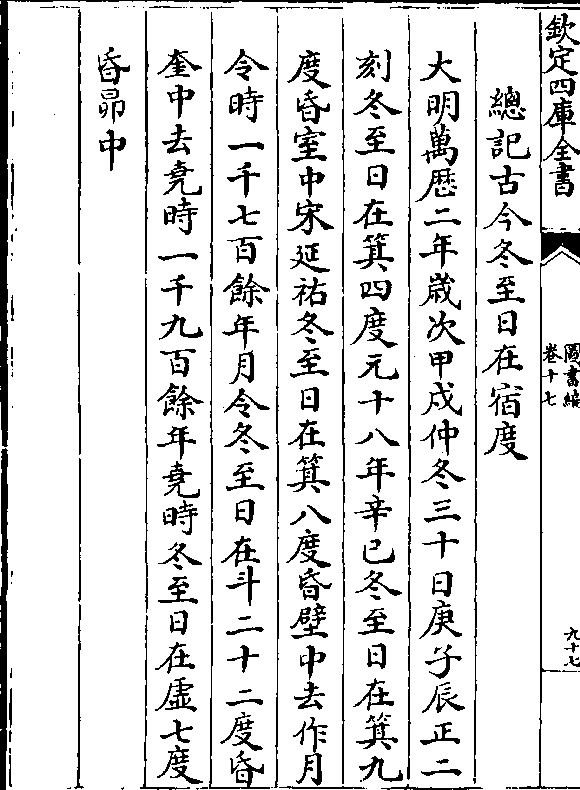 欽定四庫全書
圖書編
卷十七
九十七
總記古今冬至日在宿度
大明萬厯二年歲次甲戌仲冬三十日庚子辰正二
刻冬至日在箕四度元十八年辛巳冬至日在箕九
度昏室中宋延祐冬至日在箕八度昏壁中去作月
令時一千七百餘年月令冬至日在斗二十二度昏
奎中去堯時一千九百餘年堯時冬至日在虛七度
昏昴中